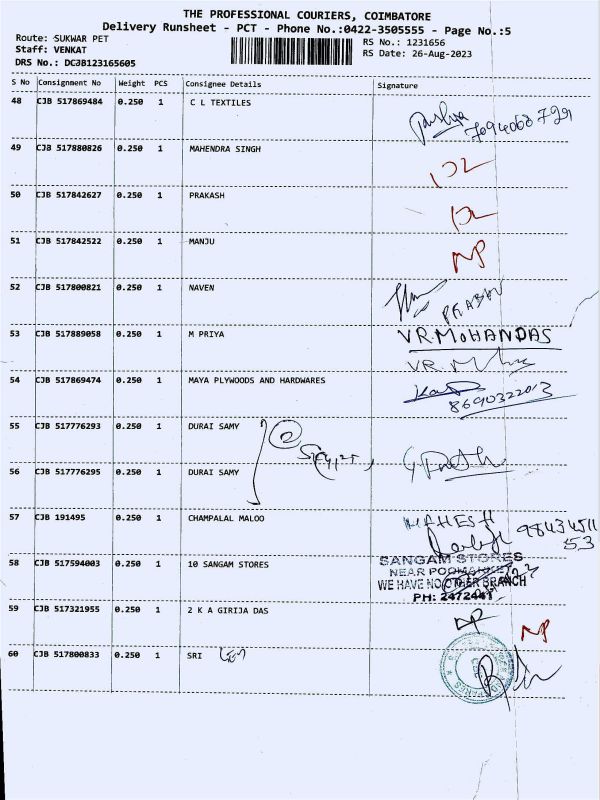 THE PROFESSIONAL COURIERS, COIMBATORE
Delivery Runsheet - PCT - Phone No.:0422-3505555 - Page No.:5
Route: SUKWAR PET
Staff: VENKAT
DRS No.: DCJB123165605
RS No.: 1231656
RS Date: 26-Aug-2023
S No Consignment No Weight PCS Consignee Details Signature
48 CJB 517869484 0.250 1 C L TEXTILES
49 CJB 517880826 0.250 1 MAHENDRA SINGH
50 CJB 517842627 0.250 1 PRAKASH
51 CJB 517842522 0.250 1 MANJU NP
52 CJB 517800821 0.250 1 NAVEN PRABHU
53 CJB 517889058 0.250 1 M PRIYA VR.MOHANDAS
54 CJB 517869474 0.250 1 MAYA PLYWOODS AND HARDWARES 8690322013
55 CJB 517776293 0.250 1 DURAI SAMY
56 CJB 517776295 0.250 1 DURAI SAMY
57 CJB 191495 0.250 1 CHAMPALAL MALOO MAHESH
58 CJB 517594003 0.250 1 10 SANGAM STORES SANGAM STORES
WE HAVE NO OTHER BRANCH
PH: 2472441
59 CJB 517321955 0.250 1 2 K A GIRIJA DAS NP NP
60 CJB 517800833 0.250 1 SRI